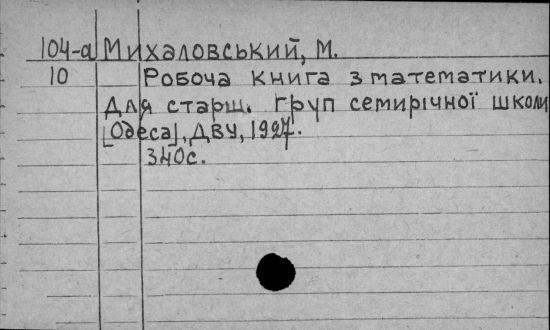 104-а Михаловський, М.
10 Робоча книга з математики.
Для старш. груп семирічної школи
[Одеса], ДВУ, 1927.
340с.